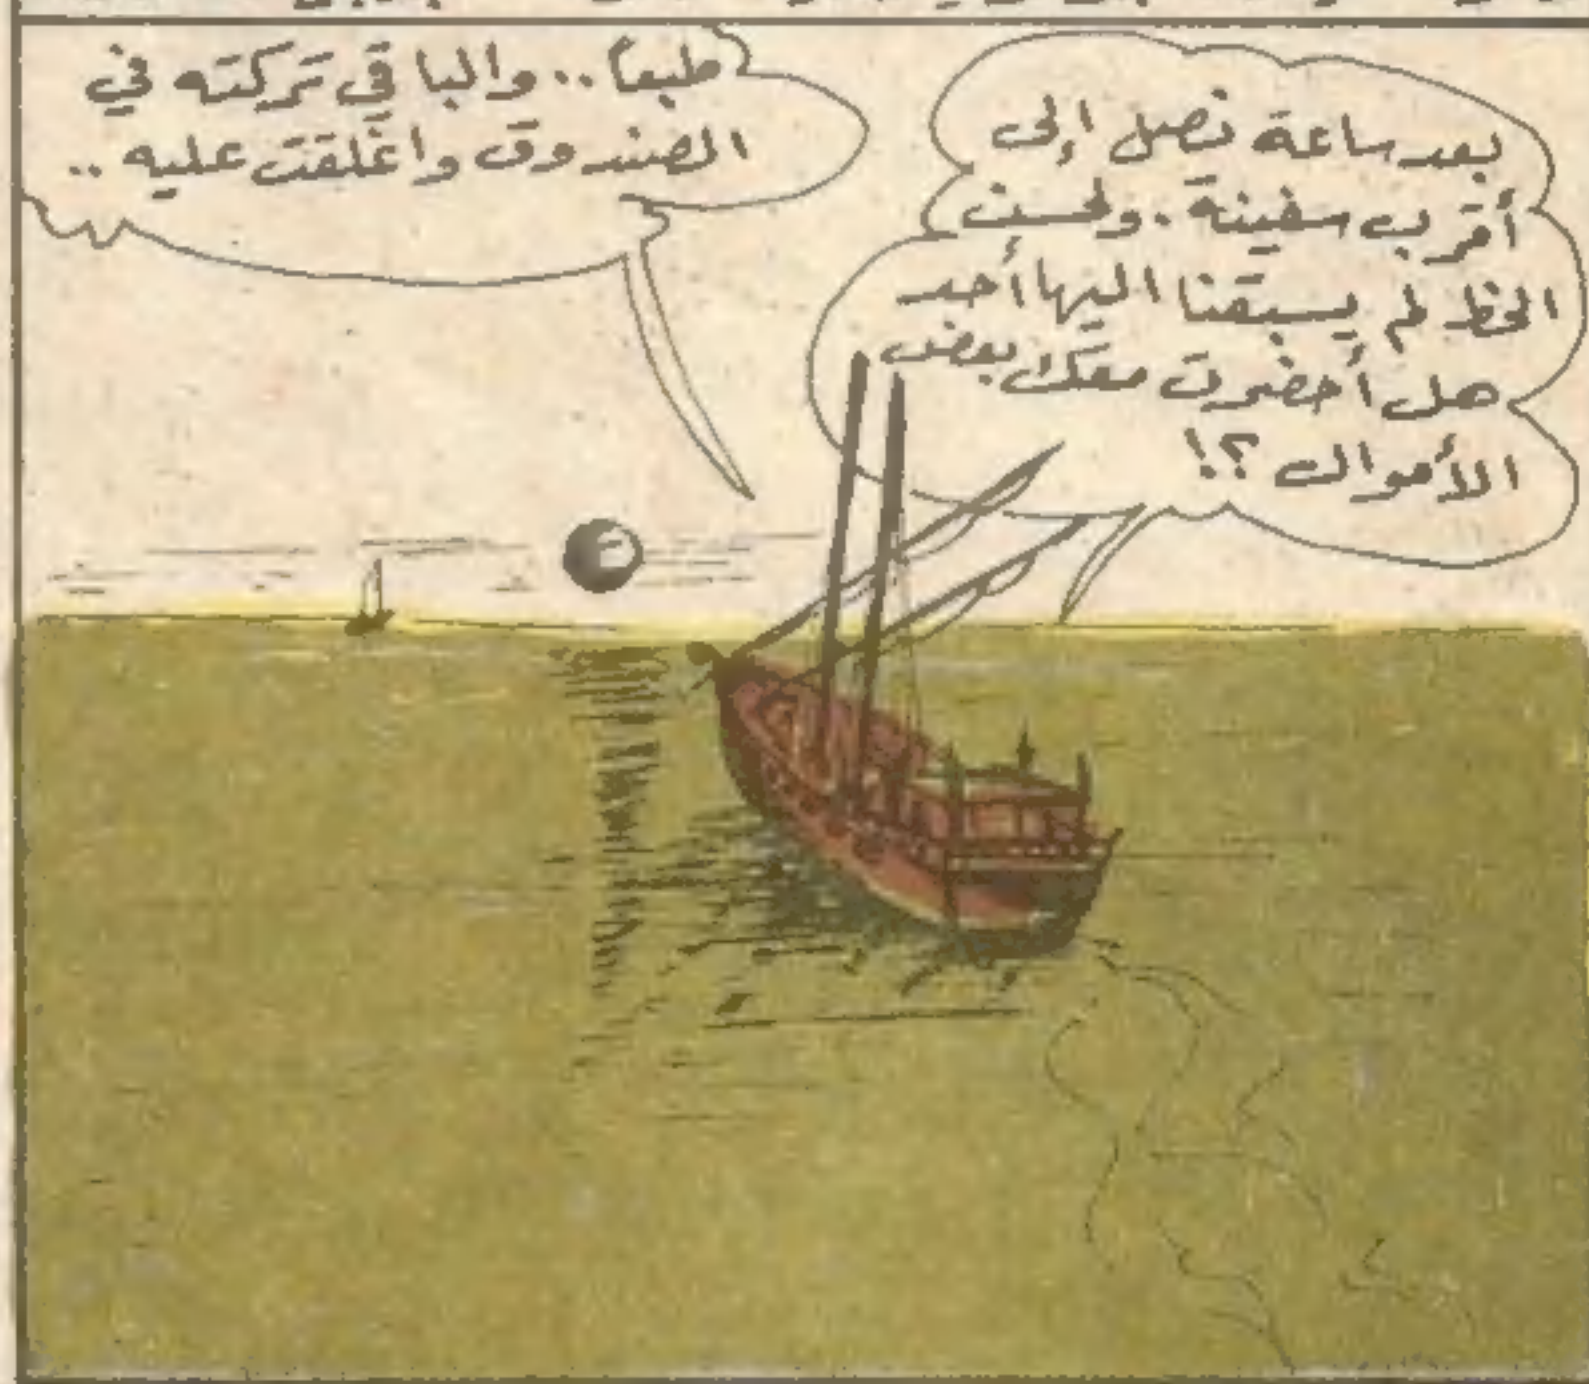 بعد ساعة نصل إلى
أقرب سفينة . ولحسن
الحظ لم يسبقنا اليها أحد
هل أحضرت معك بعض
الأموال ؟!
طبعاً .. والباقي تركته في
الصندوق واغلقت عليه ..